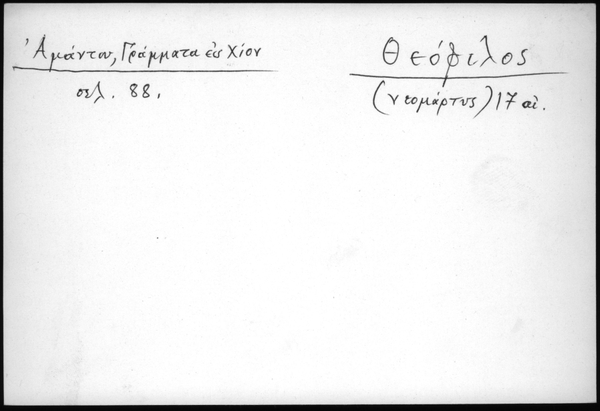 Ἀμάντου, Γράμματα εἰς Χίον
σελ. 88.
Θεόφιλος
(νεομάρτυς) 17 αἰ.